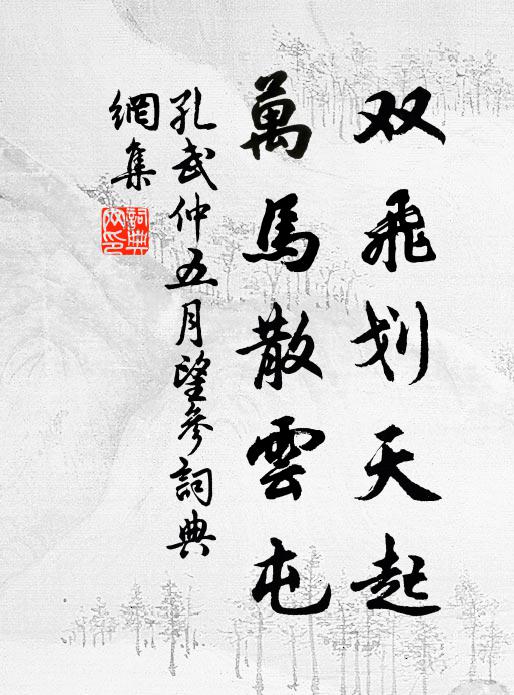 双飛划天起
萬馬散雲屯
孔武仲五月望參詞典
網集
詞典
网印